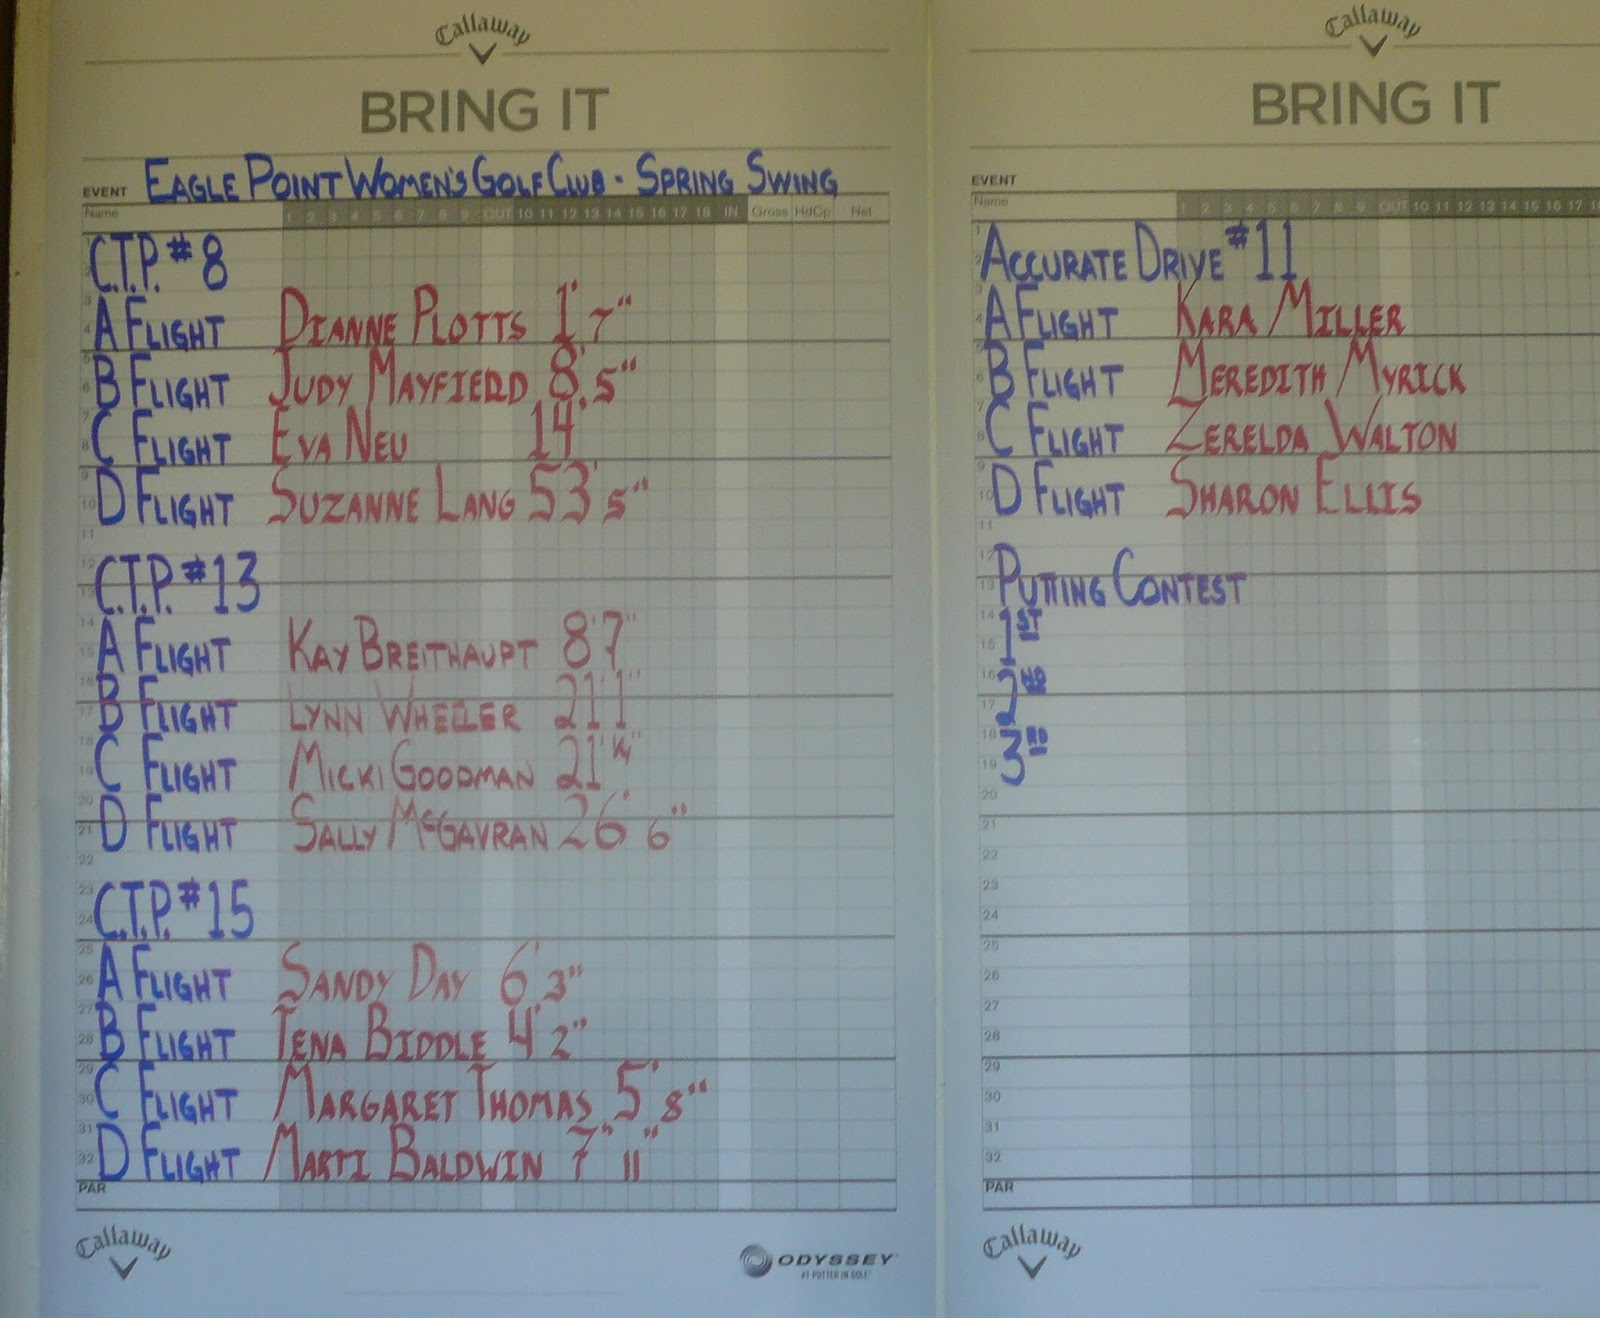 Callaway
BRING IT
EVENT EAGLE POINT WOMEN'S GOLF CLUB - SPRING SWING
Name 1 2 3 4 5 6 7 8 9 OUT 10 11 12 13 14 15 16 17 18 IN Gross HdCp Net
C.T.P. #8
A FLIGHT DIANNE PLOTTS 1' 7"
B FLIGHT JUDY MAYFIELD 8' 5"
C FLIGHT EVA NEU 14'
D FLIGHT SUZANNE LANG 53' 5"
C.T.P. #13
A FLIGHT KAY BREITHAUPT 8'7"
B FLIGHT LYNN WHEELER 21'1"
C FLIGHT MICKI GOODMAN 21'
D FLIGHT SALLY MCGAVRAN 26' 6"
C.T.P. #15
A FLIGHT SANDY DAY 6' 3"
B FLIGHT TENA BIDDLE 4' 2"
C FLIGHT MARGARET THOMAS 5' 8"
D FLIGHT MARTI BALDWIN 7' 11"
PAR
Callaway
ODYSSEY
#1 PUTTER IN GOLF
Callaway
BRING IT
EVENT
Name 1 2 3 4 5 6 7 8 9 OUT 10 11 12 13 14 15 16 17
ACCURATE DRIVE #11
A FLIGHT KARA MILLER
B FLIGHT MEREDITH MYRICK
C FLIGHT ZERELDA WALTON
D FLIGHT SHARON ELLIS
PUTTING CONTEST
1ST
2ND
3RD
20
21
22
23
24
25
26
27
28
29
30
31
32
PAR
Callaway